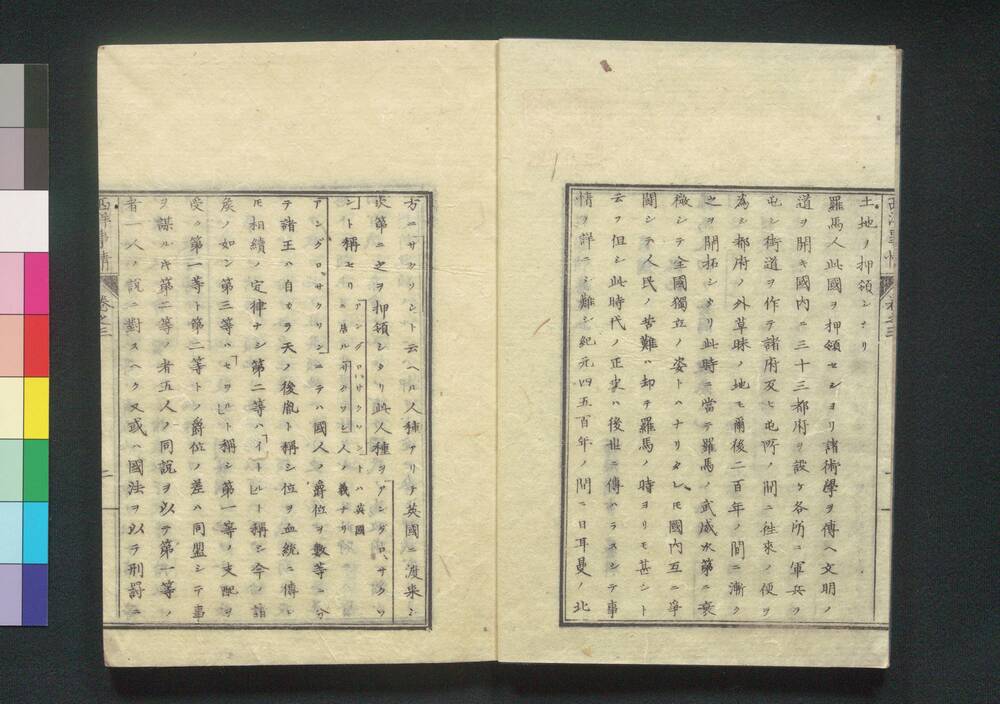 土地ノ押領シナリ
羅馬人此國ヲ押領セシヨリ諸術學ヲ傳ヘ文明ノ
道ヲ開キ國内ニ三十三都府ヲ設ケ各所ニ軍兵ヲ
屯シ街道ヲ作テ諸府及ヒ屯所ノ間ニ徃來ノ便ヲ
為シ都府ノ外草昧ノ地モ爾後二百年ノ間ニ漸ク
之ヲ開拓シタリ此時ニ當テ羅馬ノ武威次第ニ衰
微シテ全國獨立ノ姿トハナリタレ𪜈國内互ニ爭
鬪シテ人民ノ苦難ハ却テ羅馬ノ時ヨリモ甚シト
云フ但シ此時代ノ正史ハ後世ニ傳ハラスシテ事
情ヲ詳ニシ難シ紀元四五百年ノ間ニ日耳曼ノ北
西洋事情 卷之三
方ニサクソント云ヘル人種アリテ英國ニ渡来シ
次第ニ之ヲ押領シタリ此人種ヲアングロ、サクソ
ント稱セリ アングロ、サクソントハ英國ニ居ルサクソン人ノ義ナリ
アングロ、サクソンニテハ國人ノ爵位ヲ數等ニ分
テ諸王ハ自カラ天ノ後胤ト稱シ位ヲ血統ニ傳レ
𪜈相續ノ定律ナシ第二等ハイートルト稱シ今ノ諸
矦ノ如シ第三等ハセヲルト稱シ第一等ノ支配ヲ
受ク第一等ト第二等トノ爵位ノ差ハ同盟シテ事
ヲ謀ルキ第二等ノ者五人ノ同説ヲ以テ第一等ノ
者一人ノ説ニ對スヘク又或ハ國法ヲ以テ刑罰ニ
西洋事情 卷之三 二